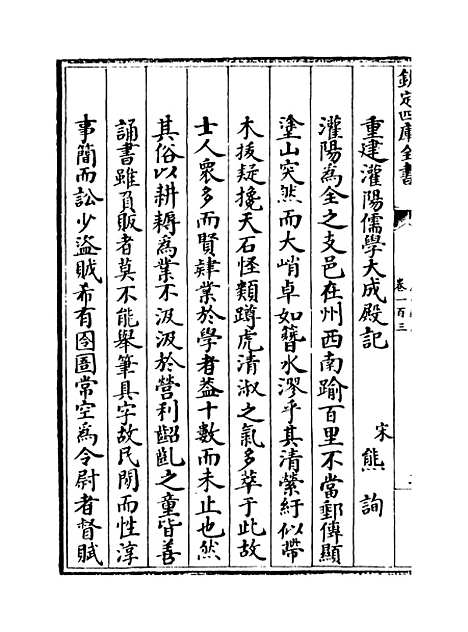 欽定四庫全書
卷一百三
重建灌陽儒學大成殿記
宋熊詢
灌陽為全之支邑在州西南踰百里不當郵傳顯
塗山突然而大峭卓如簪水漻乎其清縈紆似帶
木拔疑攙天石怪類蹲虎清淑之氣多萃于此故
士人衆多而賢肄業於學者益十數而未止也然
其俗以耕耨為業不汲汲於營利齠齔之童皆善
誦書雖負販者莫不能舉筆具字故民閒而性淳
事簡而訟少盜賊希有囹圄常空為令尉者督賦